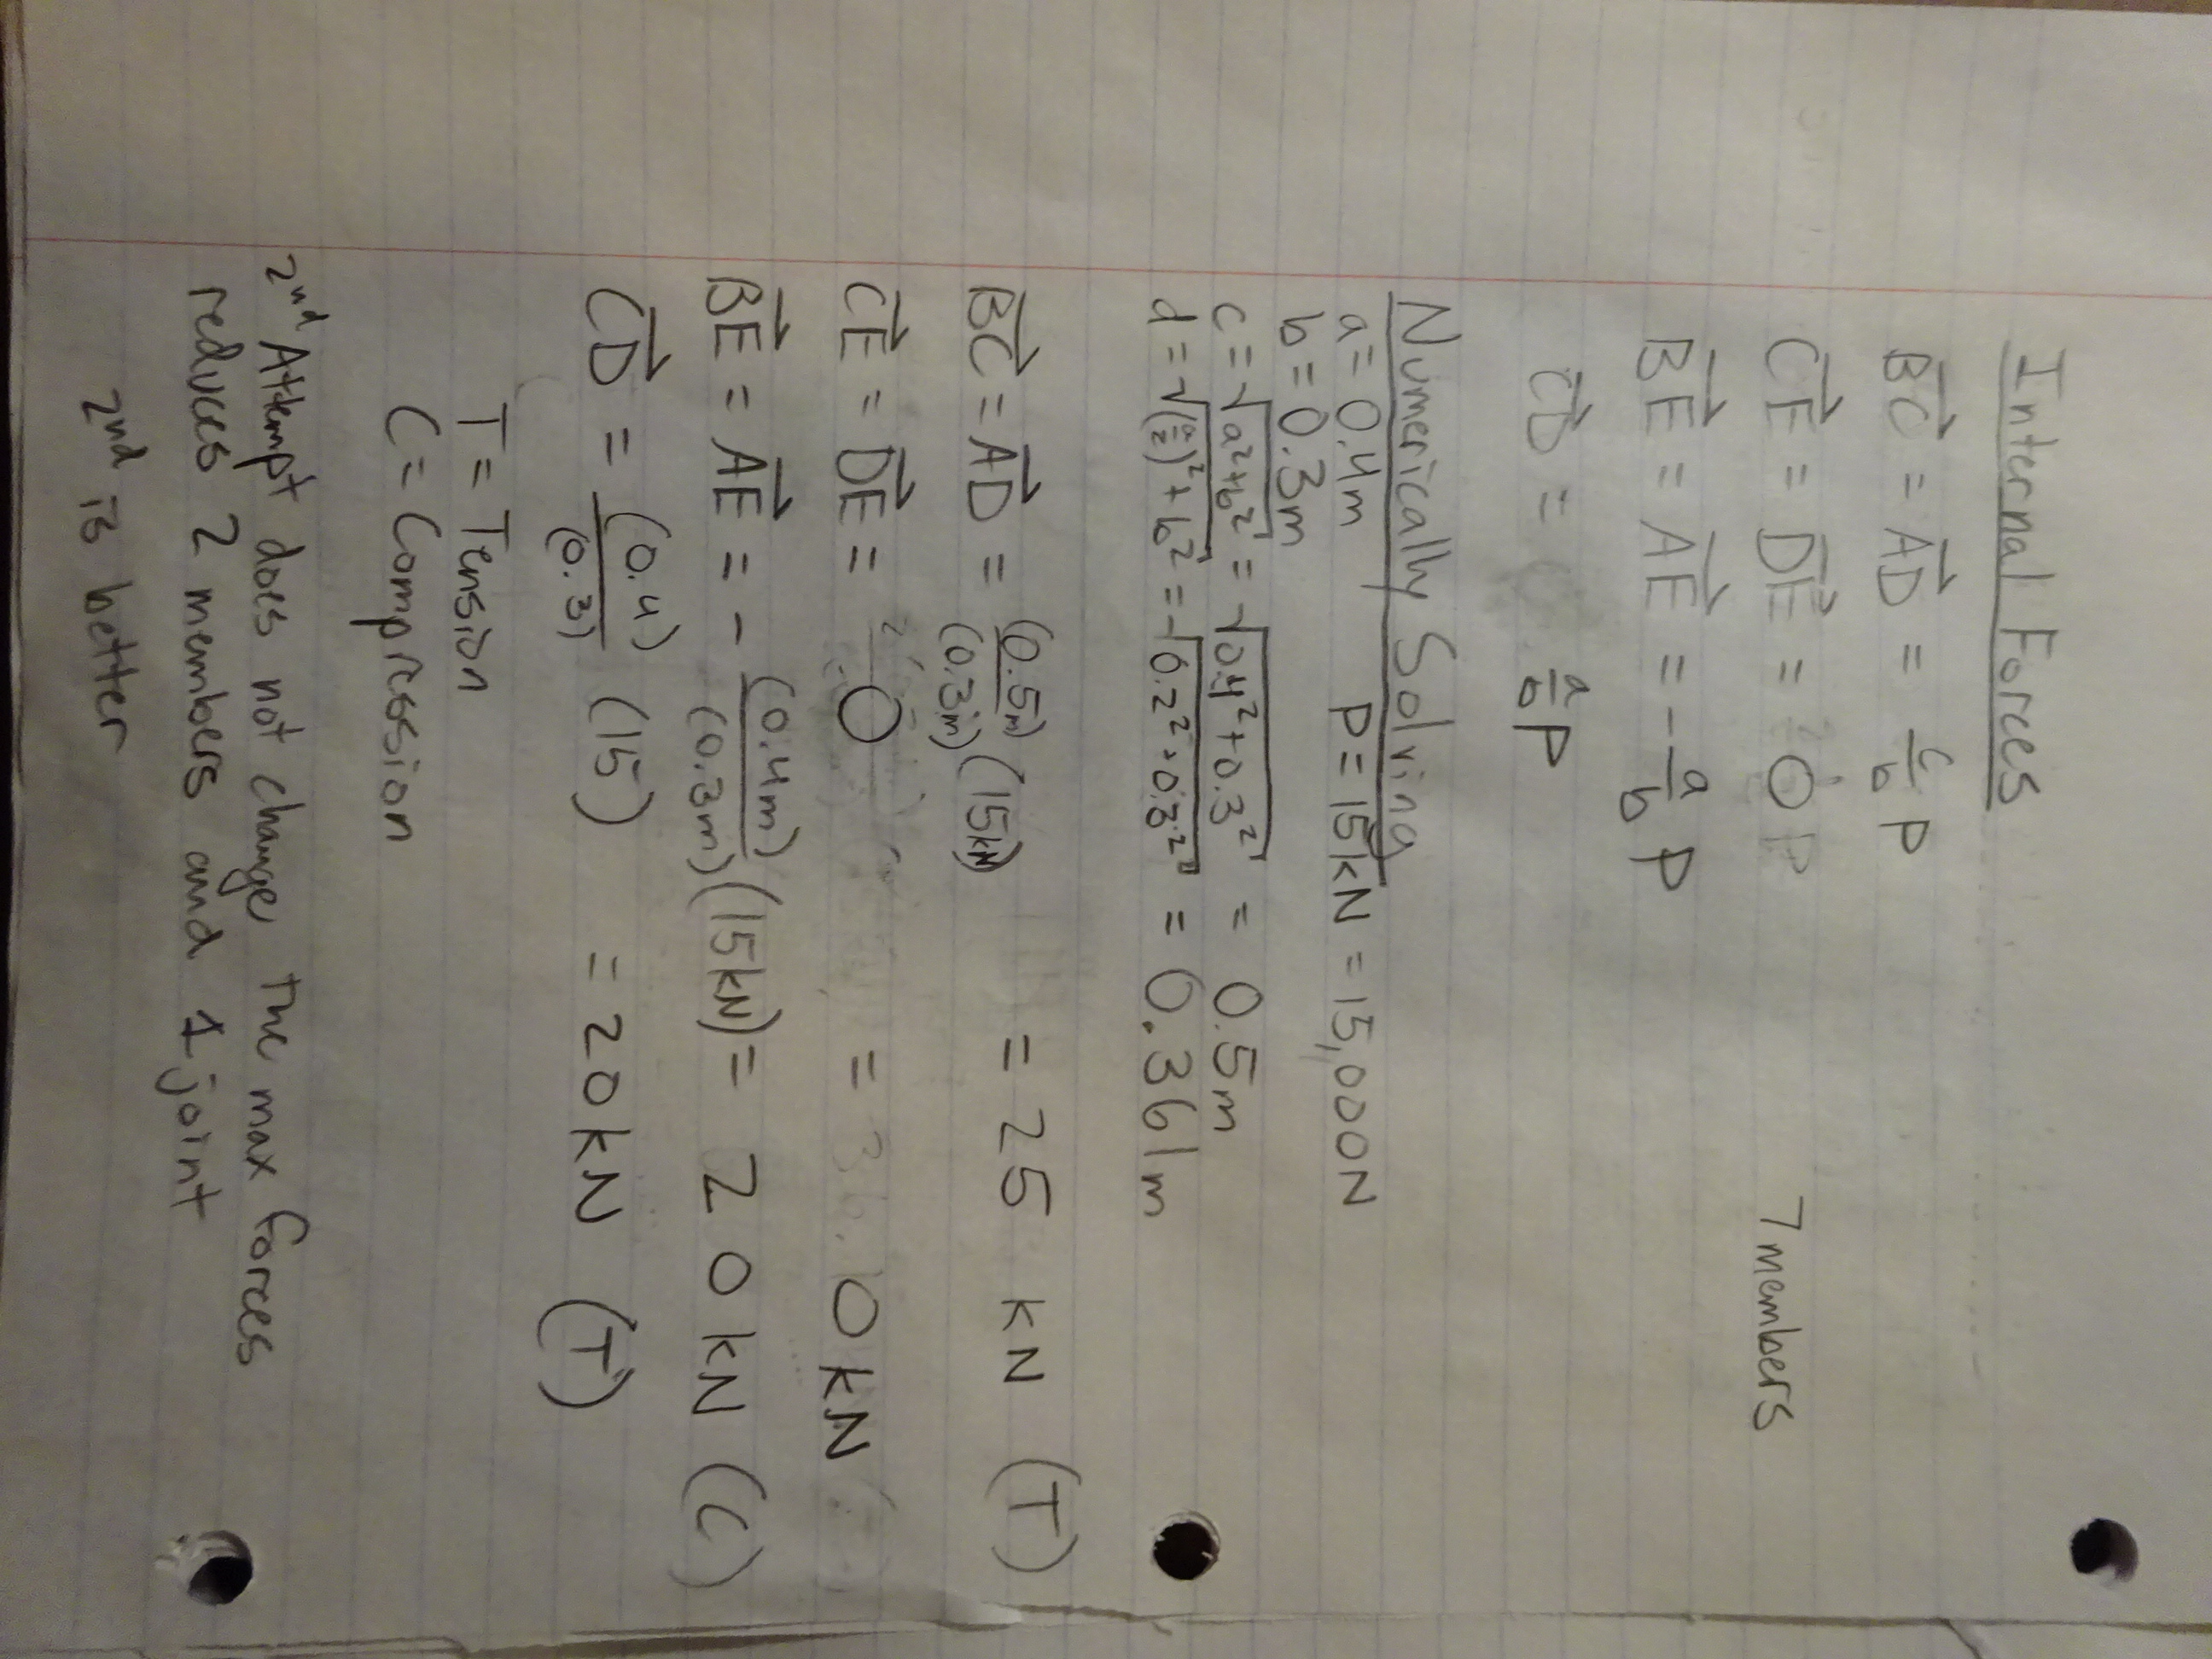 Internal Forces
BC = AD = c/b P
CE = DE = 0 P
7 members
BE = AE = - a/b P
CD = a/b P
Numerically Solving
a = 0.4m P = 15kN = 15,000N
b = 0.3m
c = √a²+b² = √0.4²+0.3² = 0.5m
d = √(a/2)²+b² = √0.2²+0.3² = 0.361m
BC = AD = (0.5m)/(0.3m) (15kN) = 25 kN (T)
CE = DE = 0 = 0 kN
BE = AE = - (0.4m)/(0.3m) (15kN) = 20 kN (C)
CD = (0.4)/(0.3) (15) = 20 kN (T)
T = Tension
C = Compression
2nd Attempt does not change the max forces
reduces 2 members and 1 joint
2nd is better